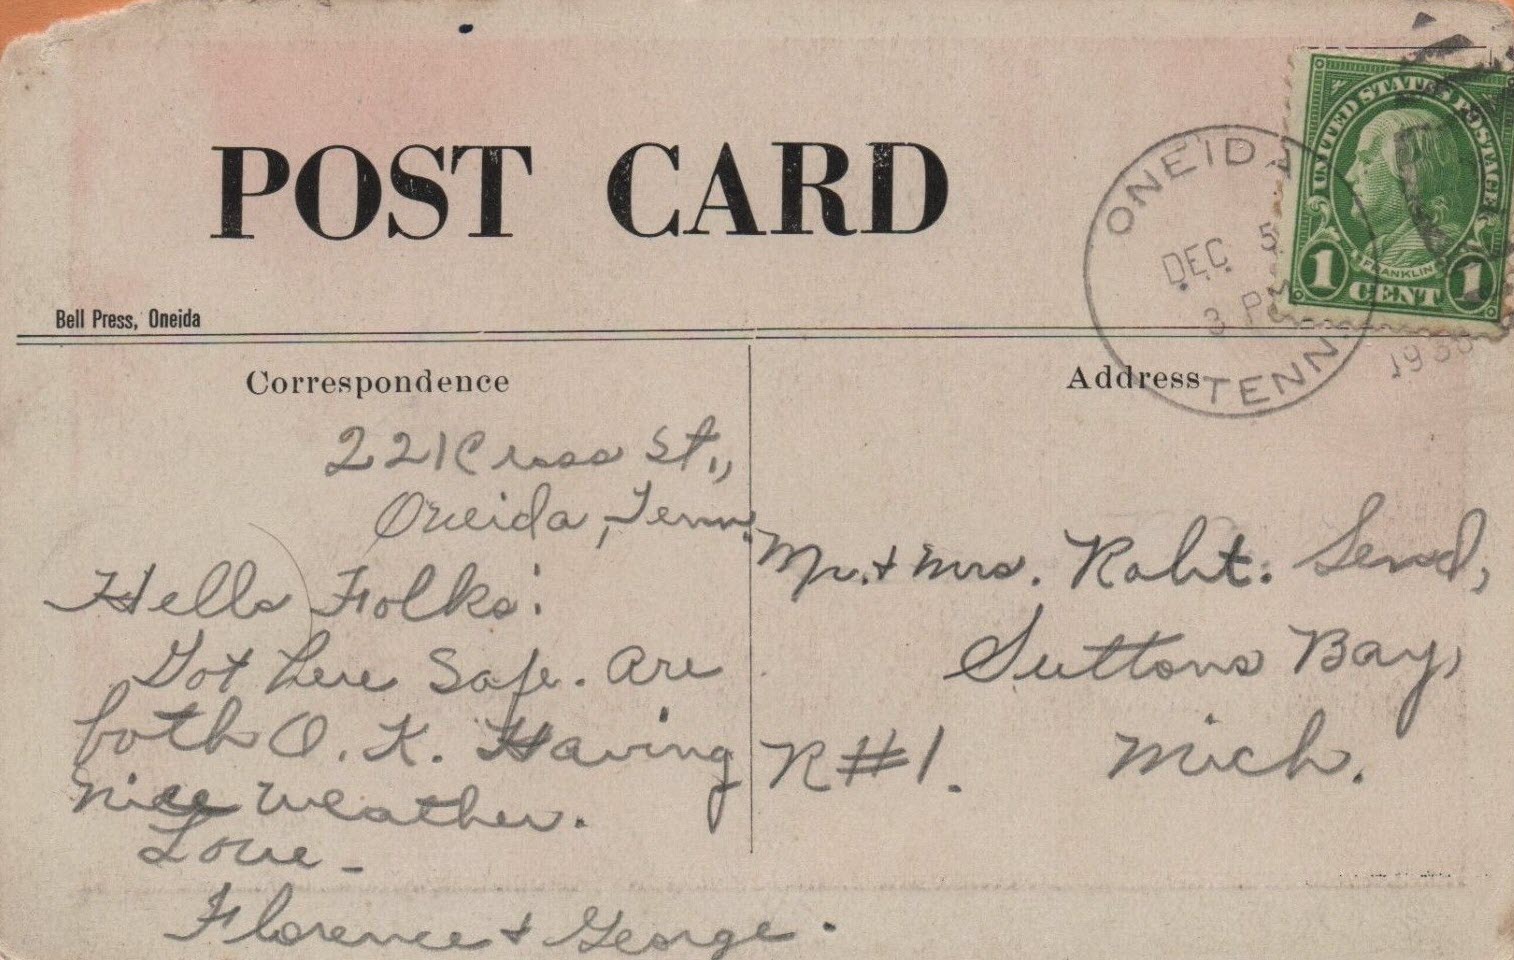 POST CARD
UNITED STATES POSTAGE
FRANKLIN
1 CENT 1
ONEIDA
DEC 5
3 PM
TENN.
Bell Press, Oneida
Correspondence
221 Cross St.,
Oneida, Tenn.
Hello Folks:
Got here Safe. Are
both O. K. Having
nice weather.
Love -
Florence & George.
Address
Mr. & Mrs. Robt.
Suttons Bay,
R#1. Mich.